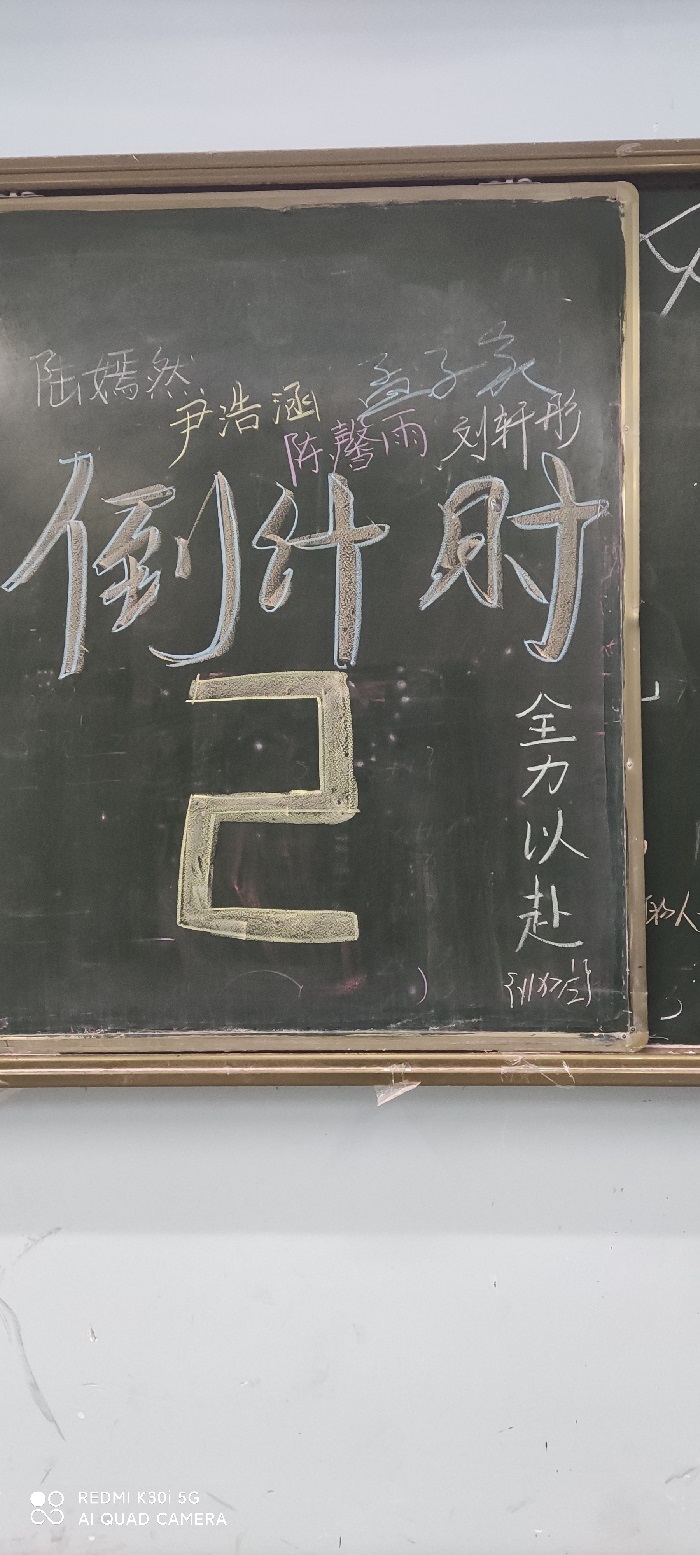 陆嫣然
孟子家
尹浩涵
陈馨雨
刘轩彤
倒计时
2
全力以赴
的人
REDMI K30i 5G
AI QUAD CAMERA